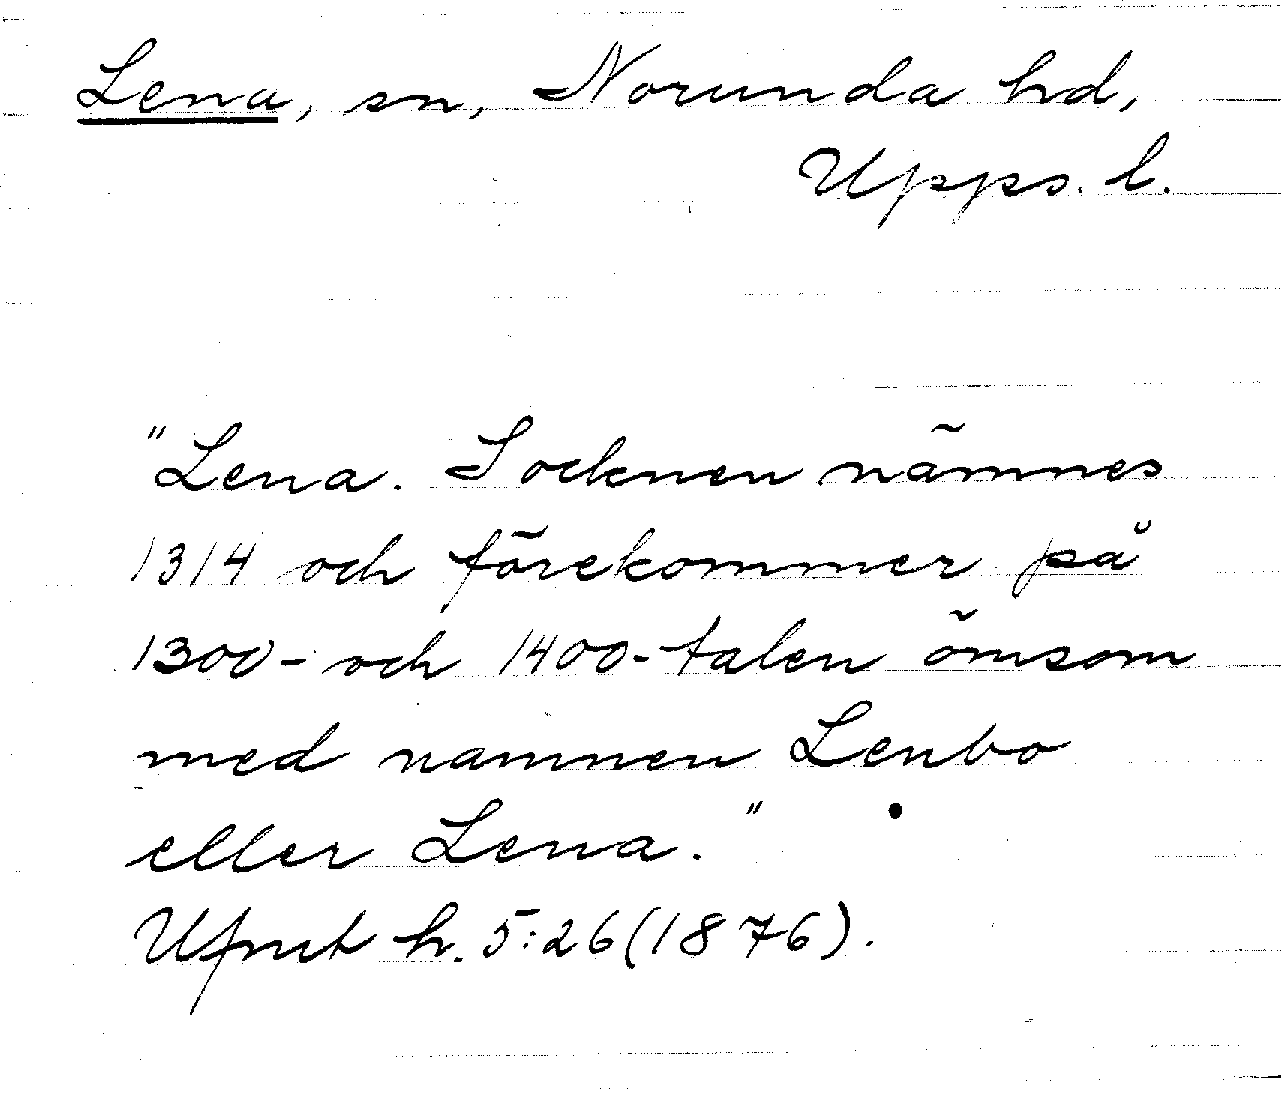 Lena, sn, Norunda hd,
Upps. l.
"Lena. Socknen nämnes
1314 och förekommer på
1300- och 1400-talen ömsom
med namnen Lenbo
eller Lena."
Ufmt h. 5:26 (1876).